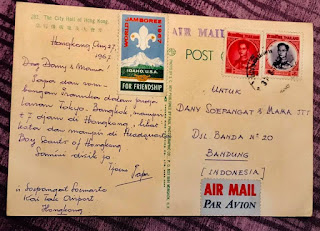 202. The City Hall of Hong Kong.
Hongkong Aug 27,
1967
Dag Dany & Mama!
Papa dan rom-
bongan Pramuka dalam perja-
lanan Tokyo. Bangkok, mampir
± 7 djam di Hongkong, lihat
kota dan mampir di Headquarter
Boy Scouts of Hongkong.
Papa
Soepangat Soemarto
Kai Tak Airport
Hongkong
WORLD
JAMBOREE
1967
IDAHO, U.S.A.
FOR FRIENDSHIP
AIR MAIL
POST C
UNTUK
DANY SOEPANGAT & MAMA III
DJL. BANDA Nº 20
BANDUNG
[INDONESIA]
AIR MAIL
PAR AVION